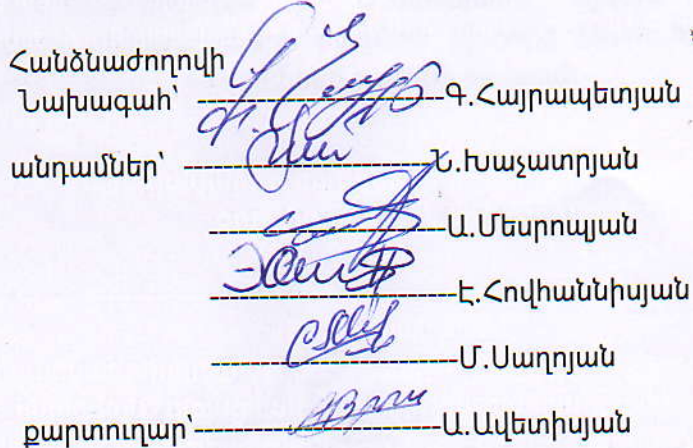 Հանձնաժողովի
Նախագահ՝ ----------------------------Գ.Հայրապետյան
անդամներ՝ ----------------------------Ն.Խաչատրյան
----------------------------Ա.Մեսրոպյան
----------------------------Է.Հովհաննիսյան
----------------------------Մ.Սաղոյան
քարտուղար՝----------------------------Ա.Ավետիսյան